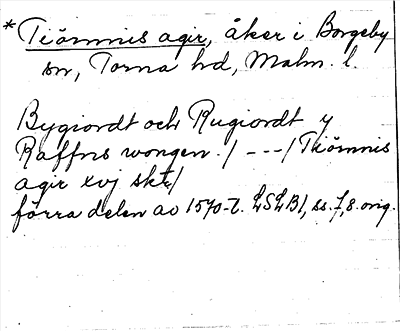 * Tiömnis agir, åker i Borgeby
sn, Torna hd, Malm. l.
Bygiordt och Rugiordt y
Raffns wongen./ ---/ Tiömnis
agir xvj skt/
förra delen av 1570-t. LSLB1, ss. 7, 8. orig.